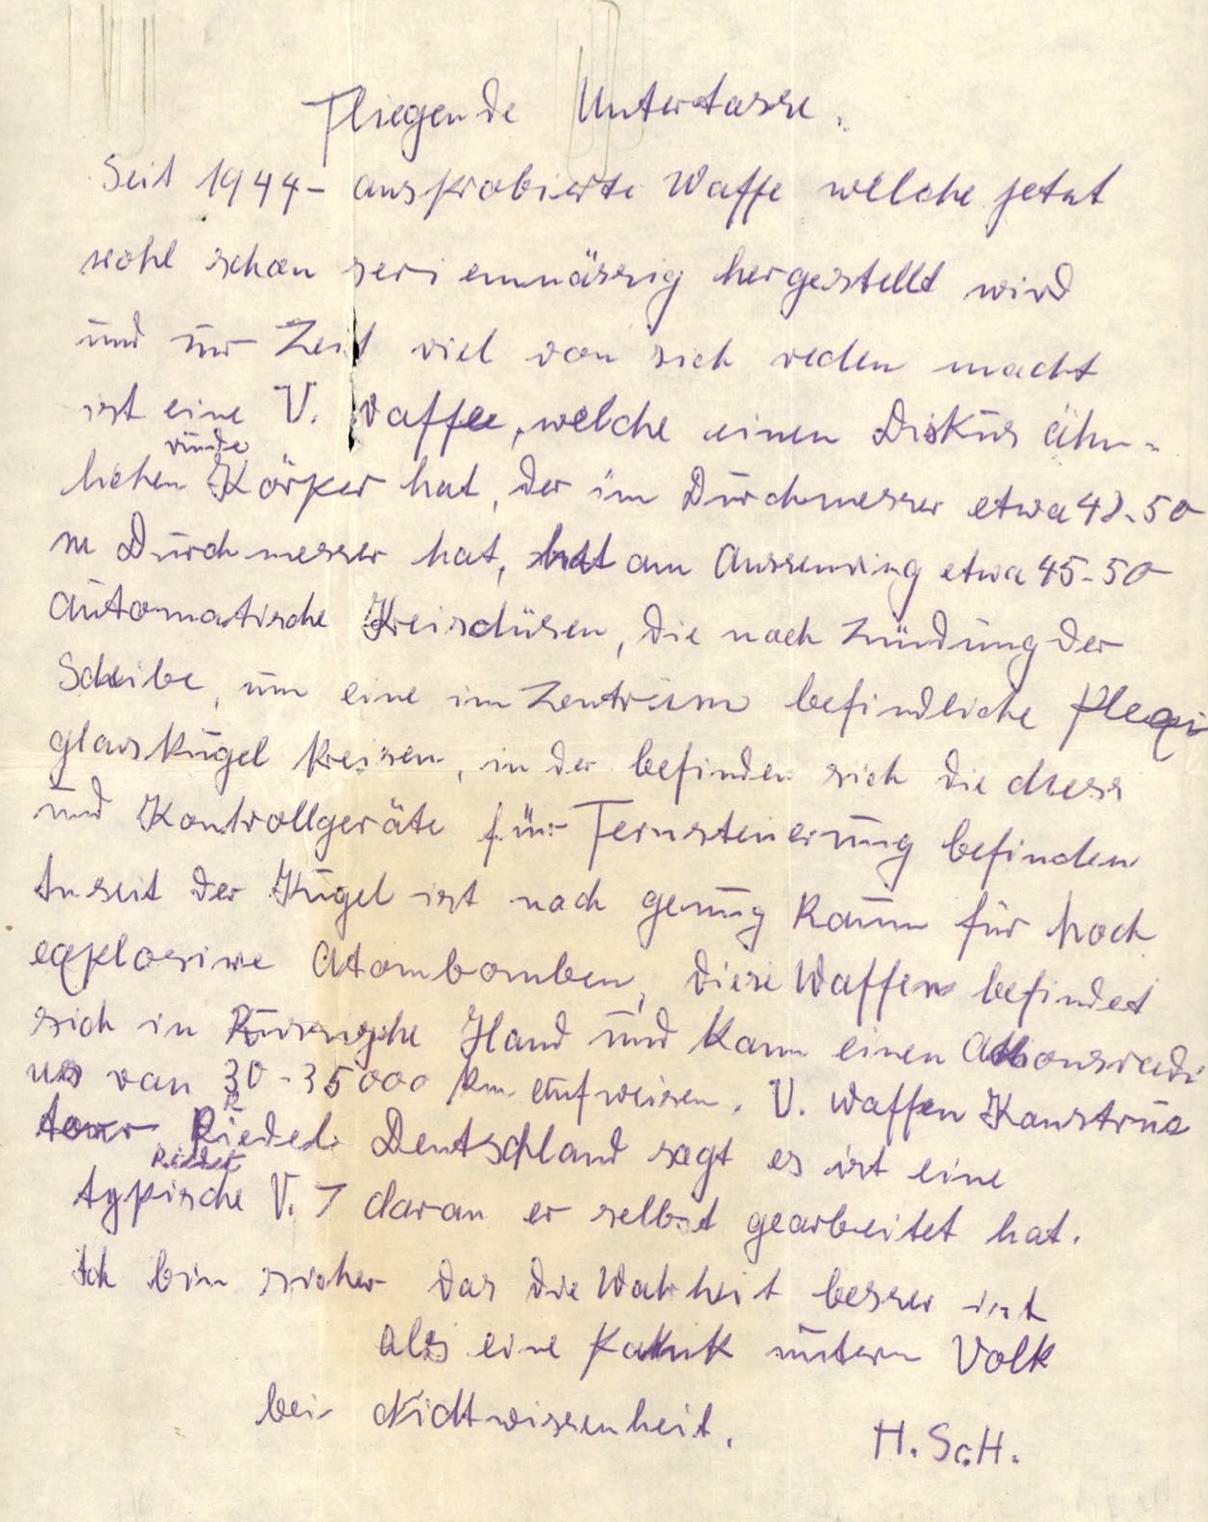 Fliegende Untertasse.
Seit 1944 – ausprobierte Waffe welche jetzt
wohl schon serienmässig hergestellt wird
und zur Zeit viel von sich reden macht
ist eine V. Waffe, welche einen Diskus ähn-
runde
lichen Körper hat, der im Durchmesser etwa 42-50
m Durchmesser hat, hat am Aussenring etwa 45-50
automatische Kreisdüsen, die nach Zündung der
Scheibe, um eine im Zentrum befindliche Plexi
glaskugel kreisen, in der befinden sich die Mess
und Kontrollgeräte für Fernsteuerung befinden
der Kugel ist noch genug Raum für hoch
explosive Atombomben, diese Waffen befindet
sich in Hand und kann einen Aktionsradi
us von 30-35000 km aufweisen. V. Waffen Konstruk
teur Riedel Deutschland sagt es ist eine
Riedel
typische V. 7 daran er selbst gearbeitet hat.
Ich bin sicher das die Wahrheit besser ist
als eine Panik unterm Volk
bei Nichtwissenheit.
H. Sc.H.